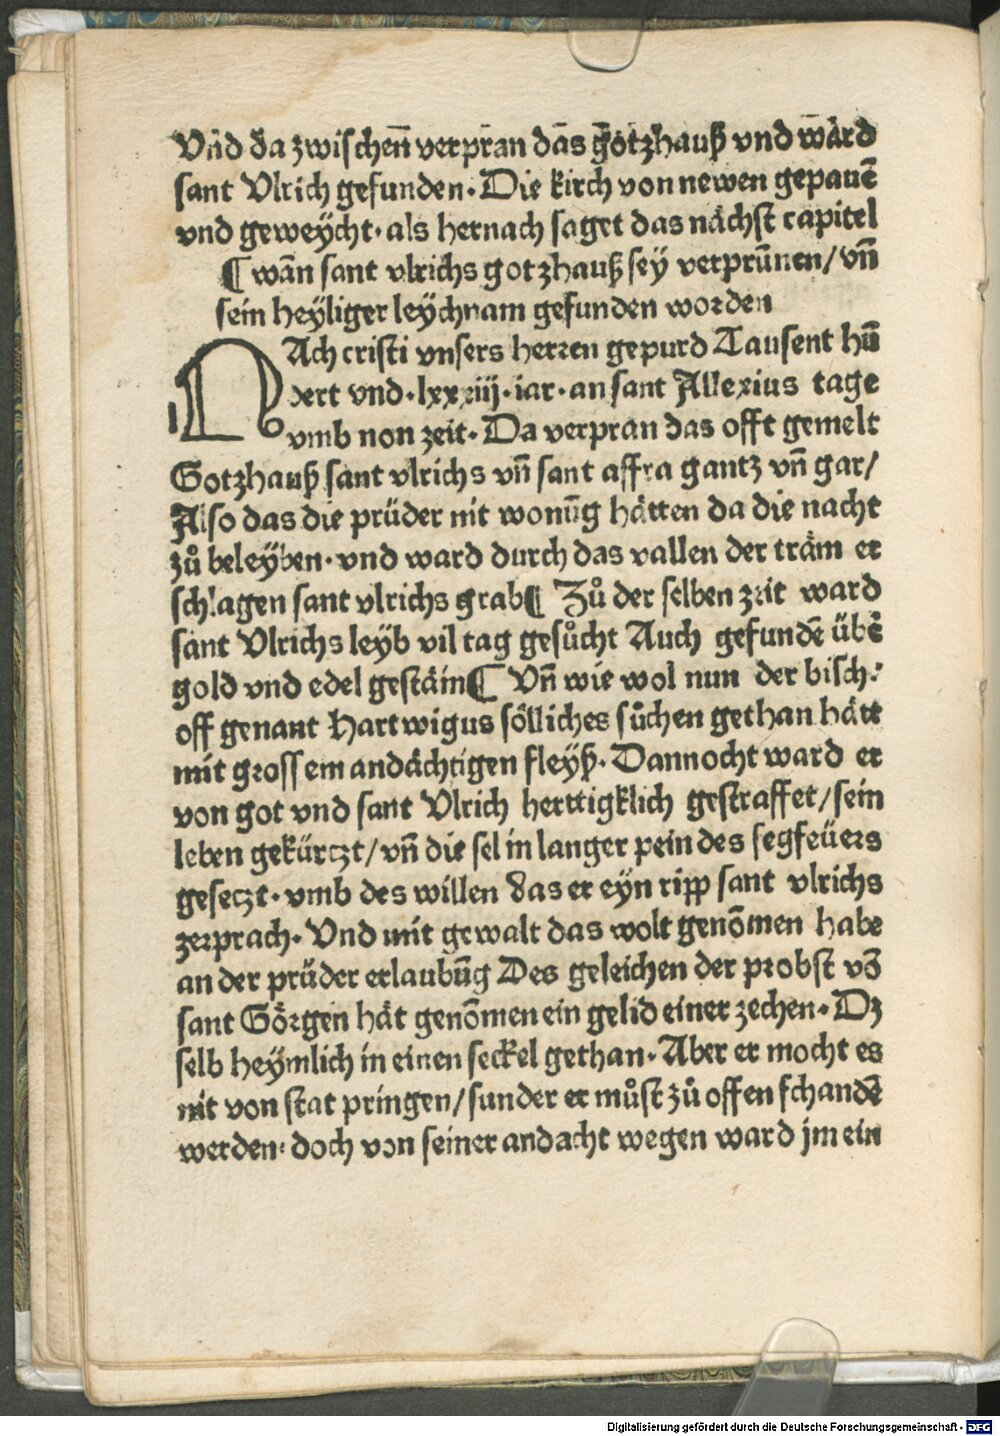 Vnd da zwischen̄ verpran das gotzhauß vnd ward
sant Vlrich gefunden. Die kirch von newen gepauē
vnd geweÿcht. als hernach saget das nächst capitel
¶ wān sant vlrichs gotzhauß seÿ verprūnen/ vn̄
sein heÿliger leÿchnam gefunden worden
NAch cristi vnsers herren gepurd Tausent hū
dert vnd .lxxxiij. iar. an sant Allexius tage
vmb non zeit. Da verpran das offt gemelt
Gotzhauß sant vlrichs vn̄ sant affra gantz vn̄ gar/
Also das die prüder nit wonūg hätten da die nacht
zů beleÿben. vnd ward durch das vallen der träm er
schlagen sant vlrichs grab¶ Zů der selben zeit ward
sant Vlrichs leÿb vil tag gesůcht Auch gefundē übē
gold vnd edel gestäin¶ Vn̄ wie wol nun der bisch:
off genant Hartwigus sölliches sůchen gethan hätt
mit grossem andächtigen fleÿß. Dannocht ward er
von got vnd sant Vlrich herttigklich gestraffet/ sein
leben gekürtzt/ vn̄ die sel in langer pein des segfeüers
gesetzt. vmb des willen das er eyn ripp sant vlrichs
zerprach. Vnd mit gewalt das wolt genōmen habe
an der prüder erlaubūg Des geleichen der probst vō
sant Görgen hät genōmen ein gelid einer zechen. Dz
selb heÿmlich in einen seckel gethan. Aber er mocht es
nit von stat pringen/ sunder er můst zů offen schandē
werden: doch von seiner andacht wegen ward jm ein
Digitalisierung gefördert durch die Deutsche Forschungsgemeinschaft - DFG